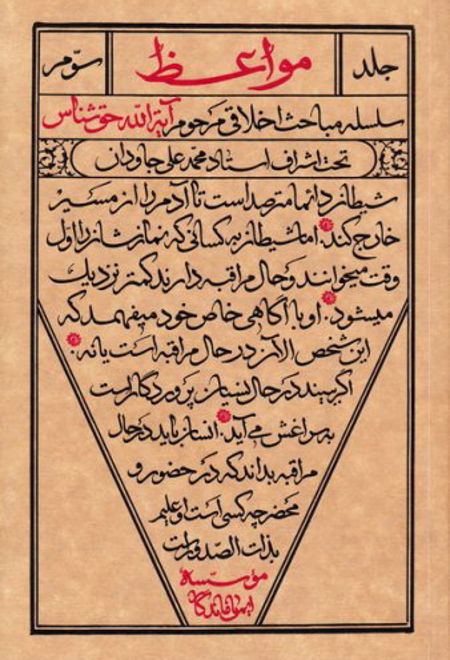 جلد مواعظ سوّم
سلسله مباحث اخلاقی مرحوم آیة الله حق شناس
تحت اشراف استاد محمد علی جاودان
شیطان دائما مترصد است تا آدم را از مسیر
خارج کند. اما شیطان به کسانی که نمازشان را اول
وقت میخوانند و حال مراقبه دارند کمتر نزدیک
میشود. او با آگاهی خاص خود میفهمد که
این شخص الآن در حال مراقبه است یا نه.
اگر ببیند در حال نسیان پروردگار است
به سراغش می آید. انسان باید در حال
مراقبه بداند که در حضور و
محضر چه کسی است او علیم
بذات الصدور است
مؤسسه